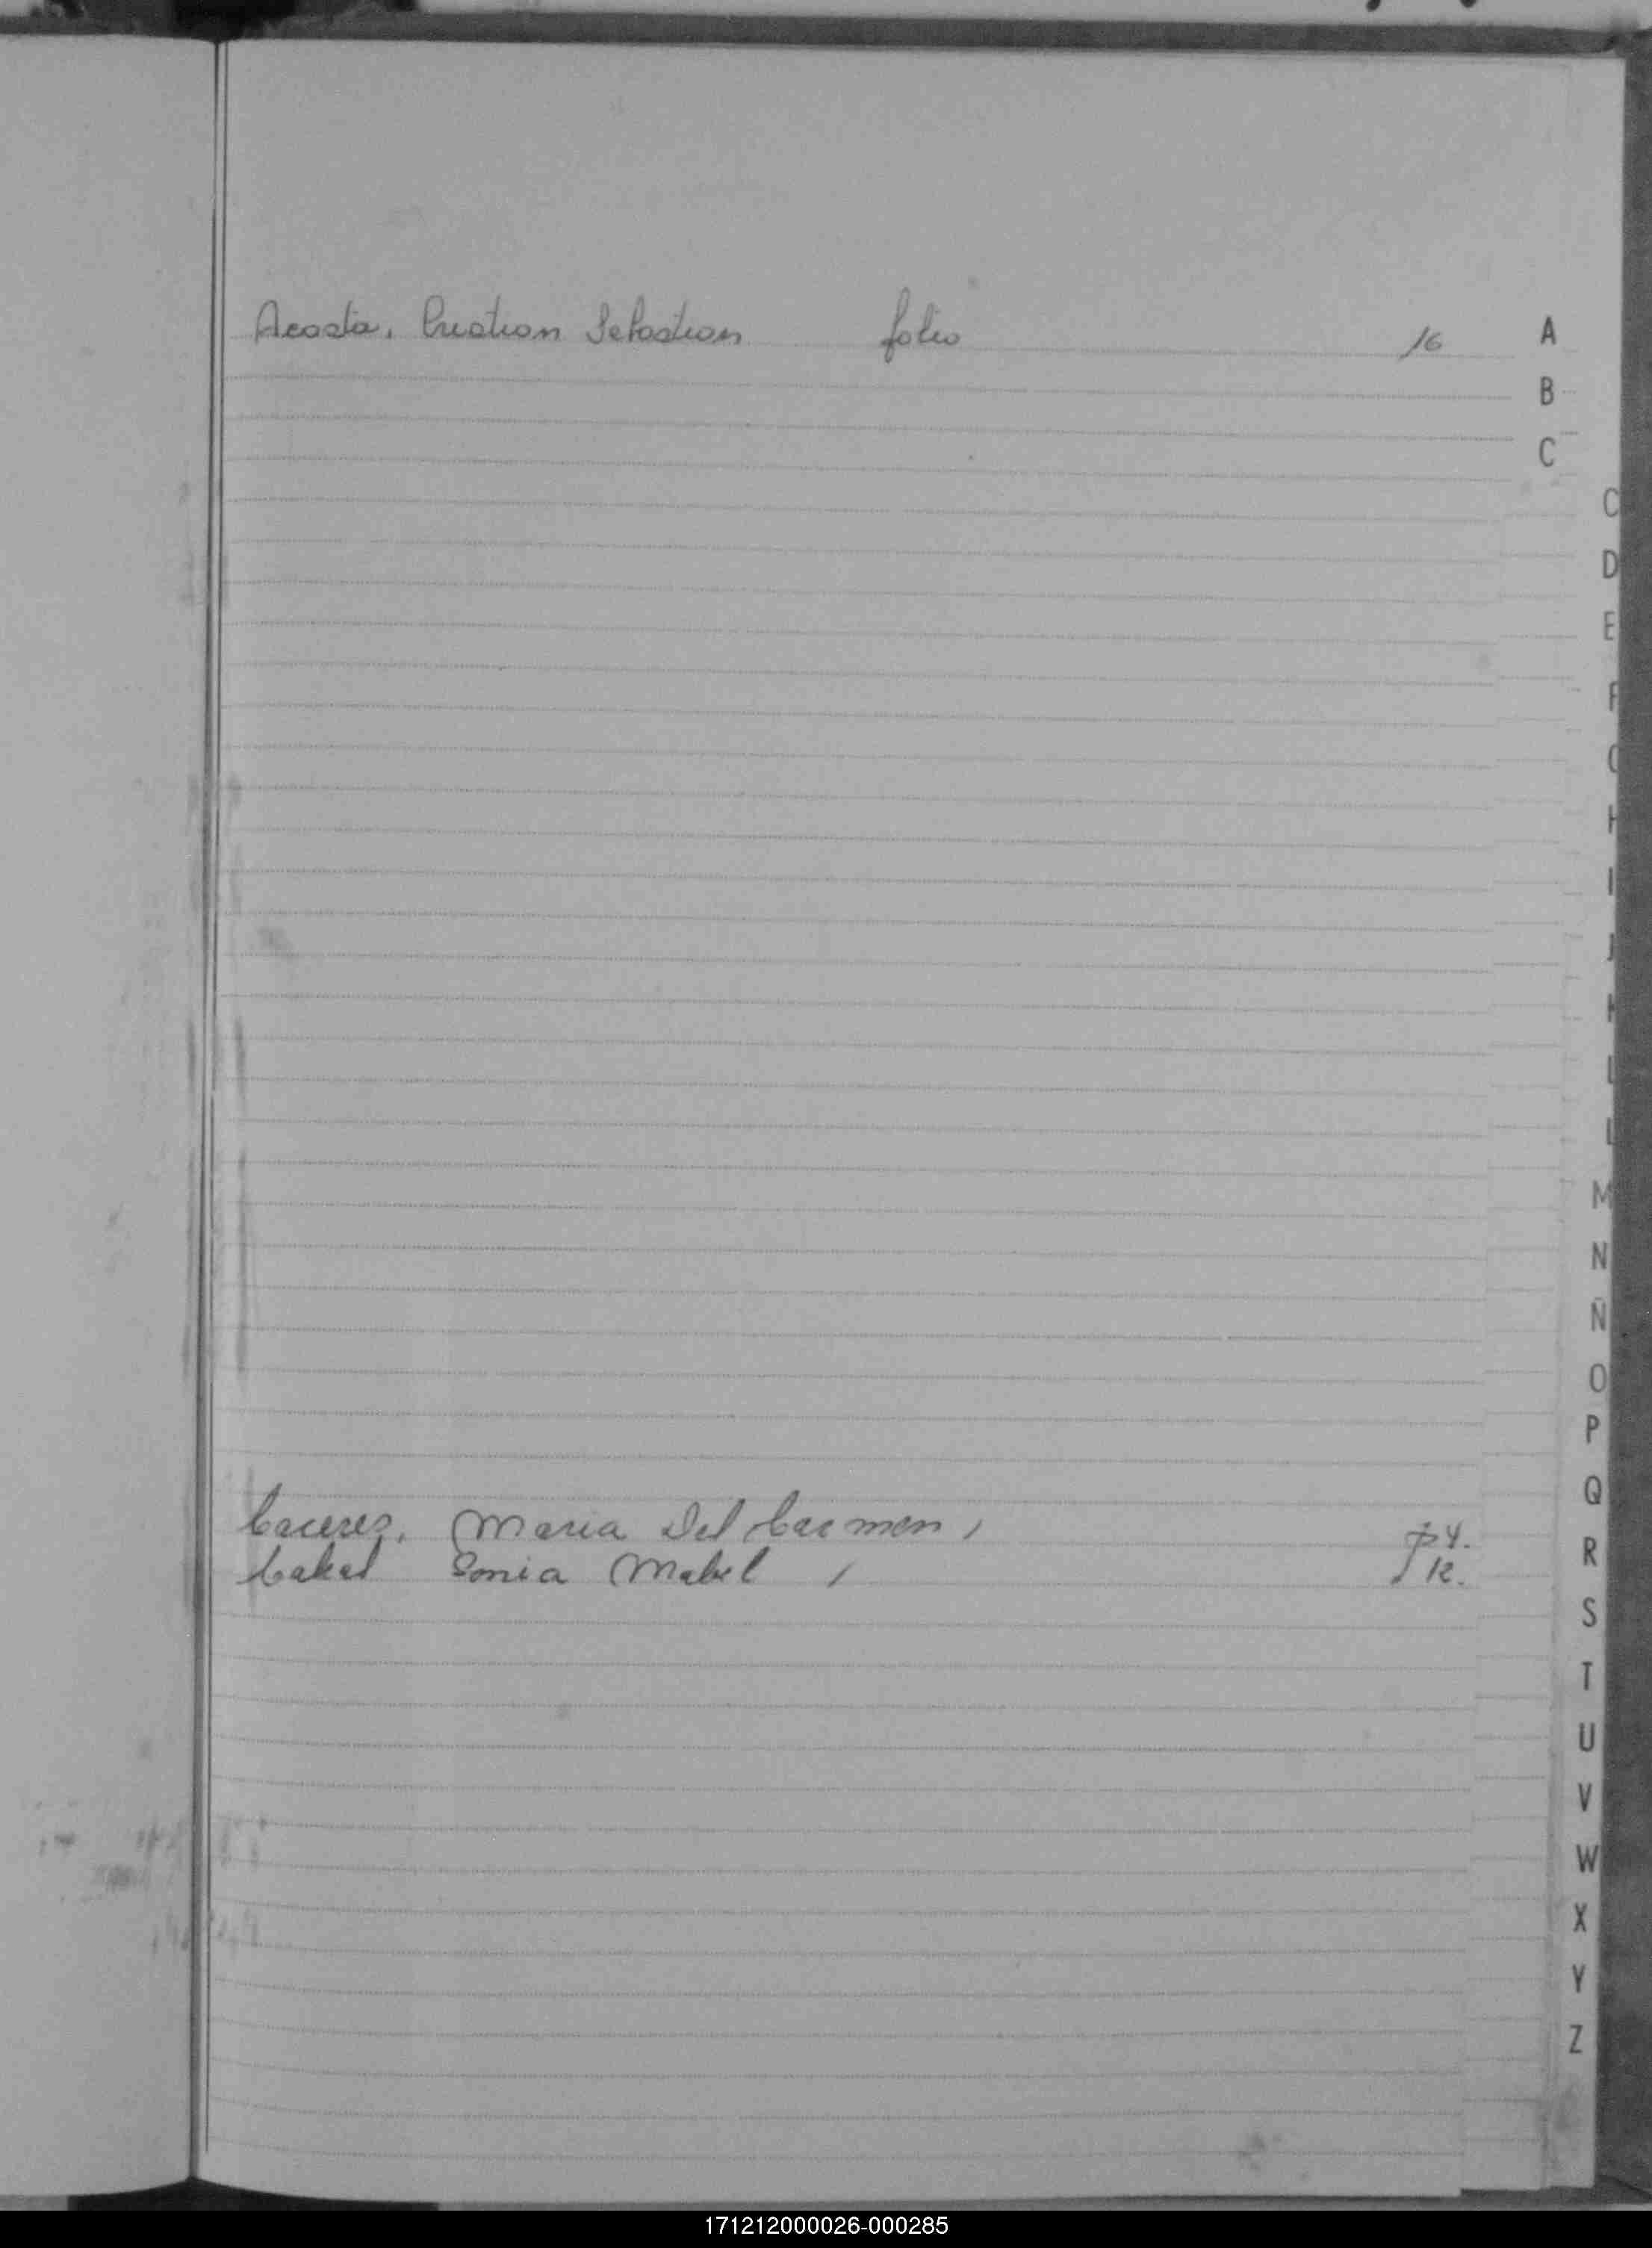 Acosta, Cristian Sebastian folio 16
A
B
C
C
D
E
F
G
H
I
J
K
L
L
M
N
Ñ
O
P
Q
Caceres, Maria Del Carmen, f 4.
R
Sonia Mabel f 12.
S
T
U
V
W
X
Y
Z
171212000026-000285